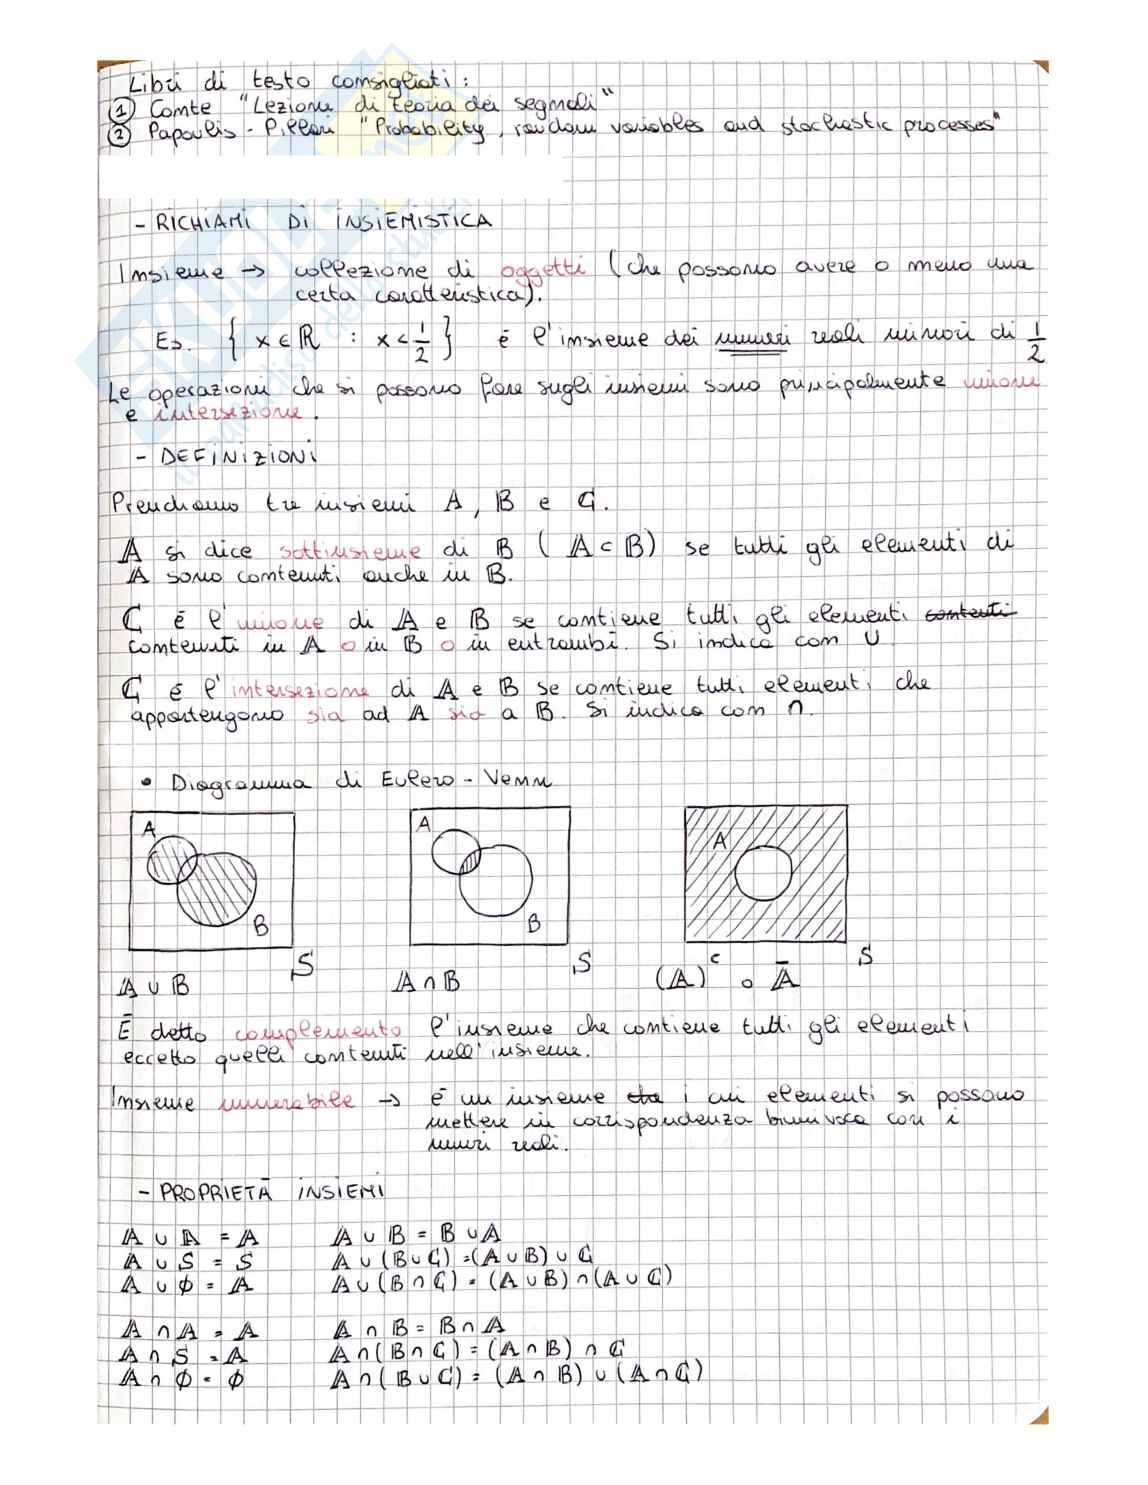 Libri di testo consigliati:
① Conte "Lezioni di teoria dei segnali"
② Papoulis - Pillai "Probability, random variables and stochastic processes"
- RICHIAMI DI INSIEMISTICA
Insieme → collezione di oggetti (che possono avere o meno una
certa caratteristica).
Es. { x ∈ ℝ : x < 1/2 } è l'insieme dei numeri reali minori di 1/2
Le operazioni che si possono fare sugli insiemi sono principalmente unione
e intersezione.
- DEFINIZIONI
Prendiamo tre insiemi A, B e C.
A si dice sottinsieme di B (A ⊂ B) se tutti gli elementi di
A sono contenuti anche in B.
C è l'unione di A e B se contiene tutti gli elementi contenuti
contenuti in A o in B o in entrambi. Si indica con ∪
C è l'intersezione di A e B se contiene tutti elementi che
appartengono sia ad A sia a B. Si indica con ∩.
• Diagramma di Eulero - Venn
A B S
A B S
A S
A ∪ B
A ∩ B
(A)ᶜ o Ā
È detto complemento l'insieme che contiene tutti gli elementi
eccetto quelli contenuti nell'insieme.
Insieme numerabile → è un insieme che i cui elementi si possono
mettere in corrispondenza biunivoca con i
numeri reali.
- PROPRIETÀ INSIEMI
A ∪ A = A A ∪ B = B ∪ A
A ∪ S = S A ∪ (B ∪ C) = (A ∪ B) ∪ C
A ∪ ∅ = A A ∪ (B ∩ C) = (A ∪ B) ∩ (A ∪ C)
A ∩ A = A A ∩ B = B ∩ A
A ∩ S = A A ∩ (B ∩ C) = (A ∩ B) ∩ C
A ∩ ∅ = ∅ A ∩ (B ∪ C) = (A ∩ B) ∪ (A ∩ C)